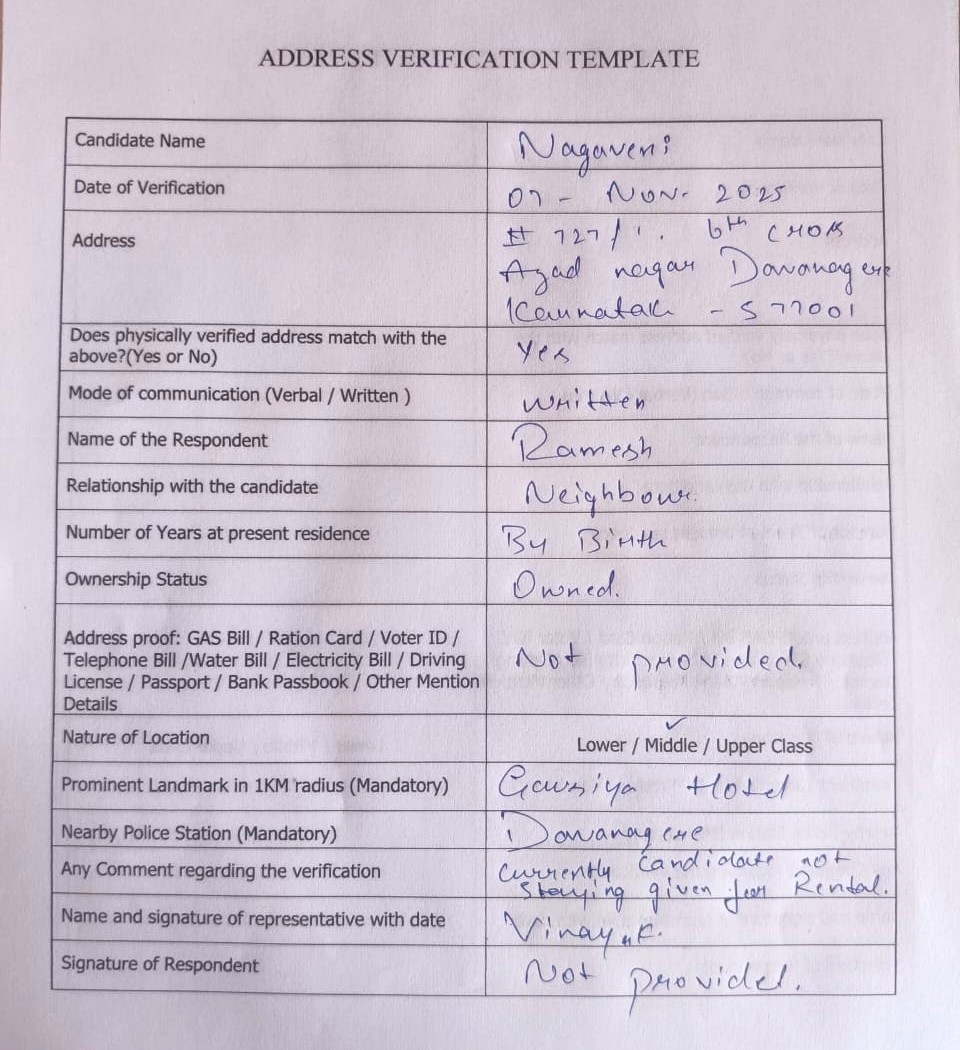 ADDRESS VERIFICATION TEMPLATE
Candidate Name
Nagaveni
Date of Verification
07 - Nov- 2025
Address
# 727/1. 6th cross
Azad nagar Davanagere
Karnataka - 577001
Does physically verified address match with the
above?(Yes or No)
Yes
Mode of communication (Verbal / Written )
Written
Name of the Respondent
Ramesh
Relationship with the candidate
Neighbour.
Number of Years at present residence
By Birth
Ownership Status
Owned.
Address proof: GAS Bill / Ration Card / Voter ID /
Telephone Bill /Water Bill / Electricity Bill / Driving
License / Passport / Bank Passbook / Other Mention
Details
Not provided.
Nature of Location
Lower / Middle / Upper Class
Prominent Landmark in 1KM radius (Mandatory)
Gausiya Hotel
Nearby Police Station (Mandatory)
Davanagere
Any Comment regarding the verification
Currently Candidate not
Staying given for Rental.
Name and signature of representative with date
Vinay K.
Signature of Respondent
Not provided.